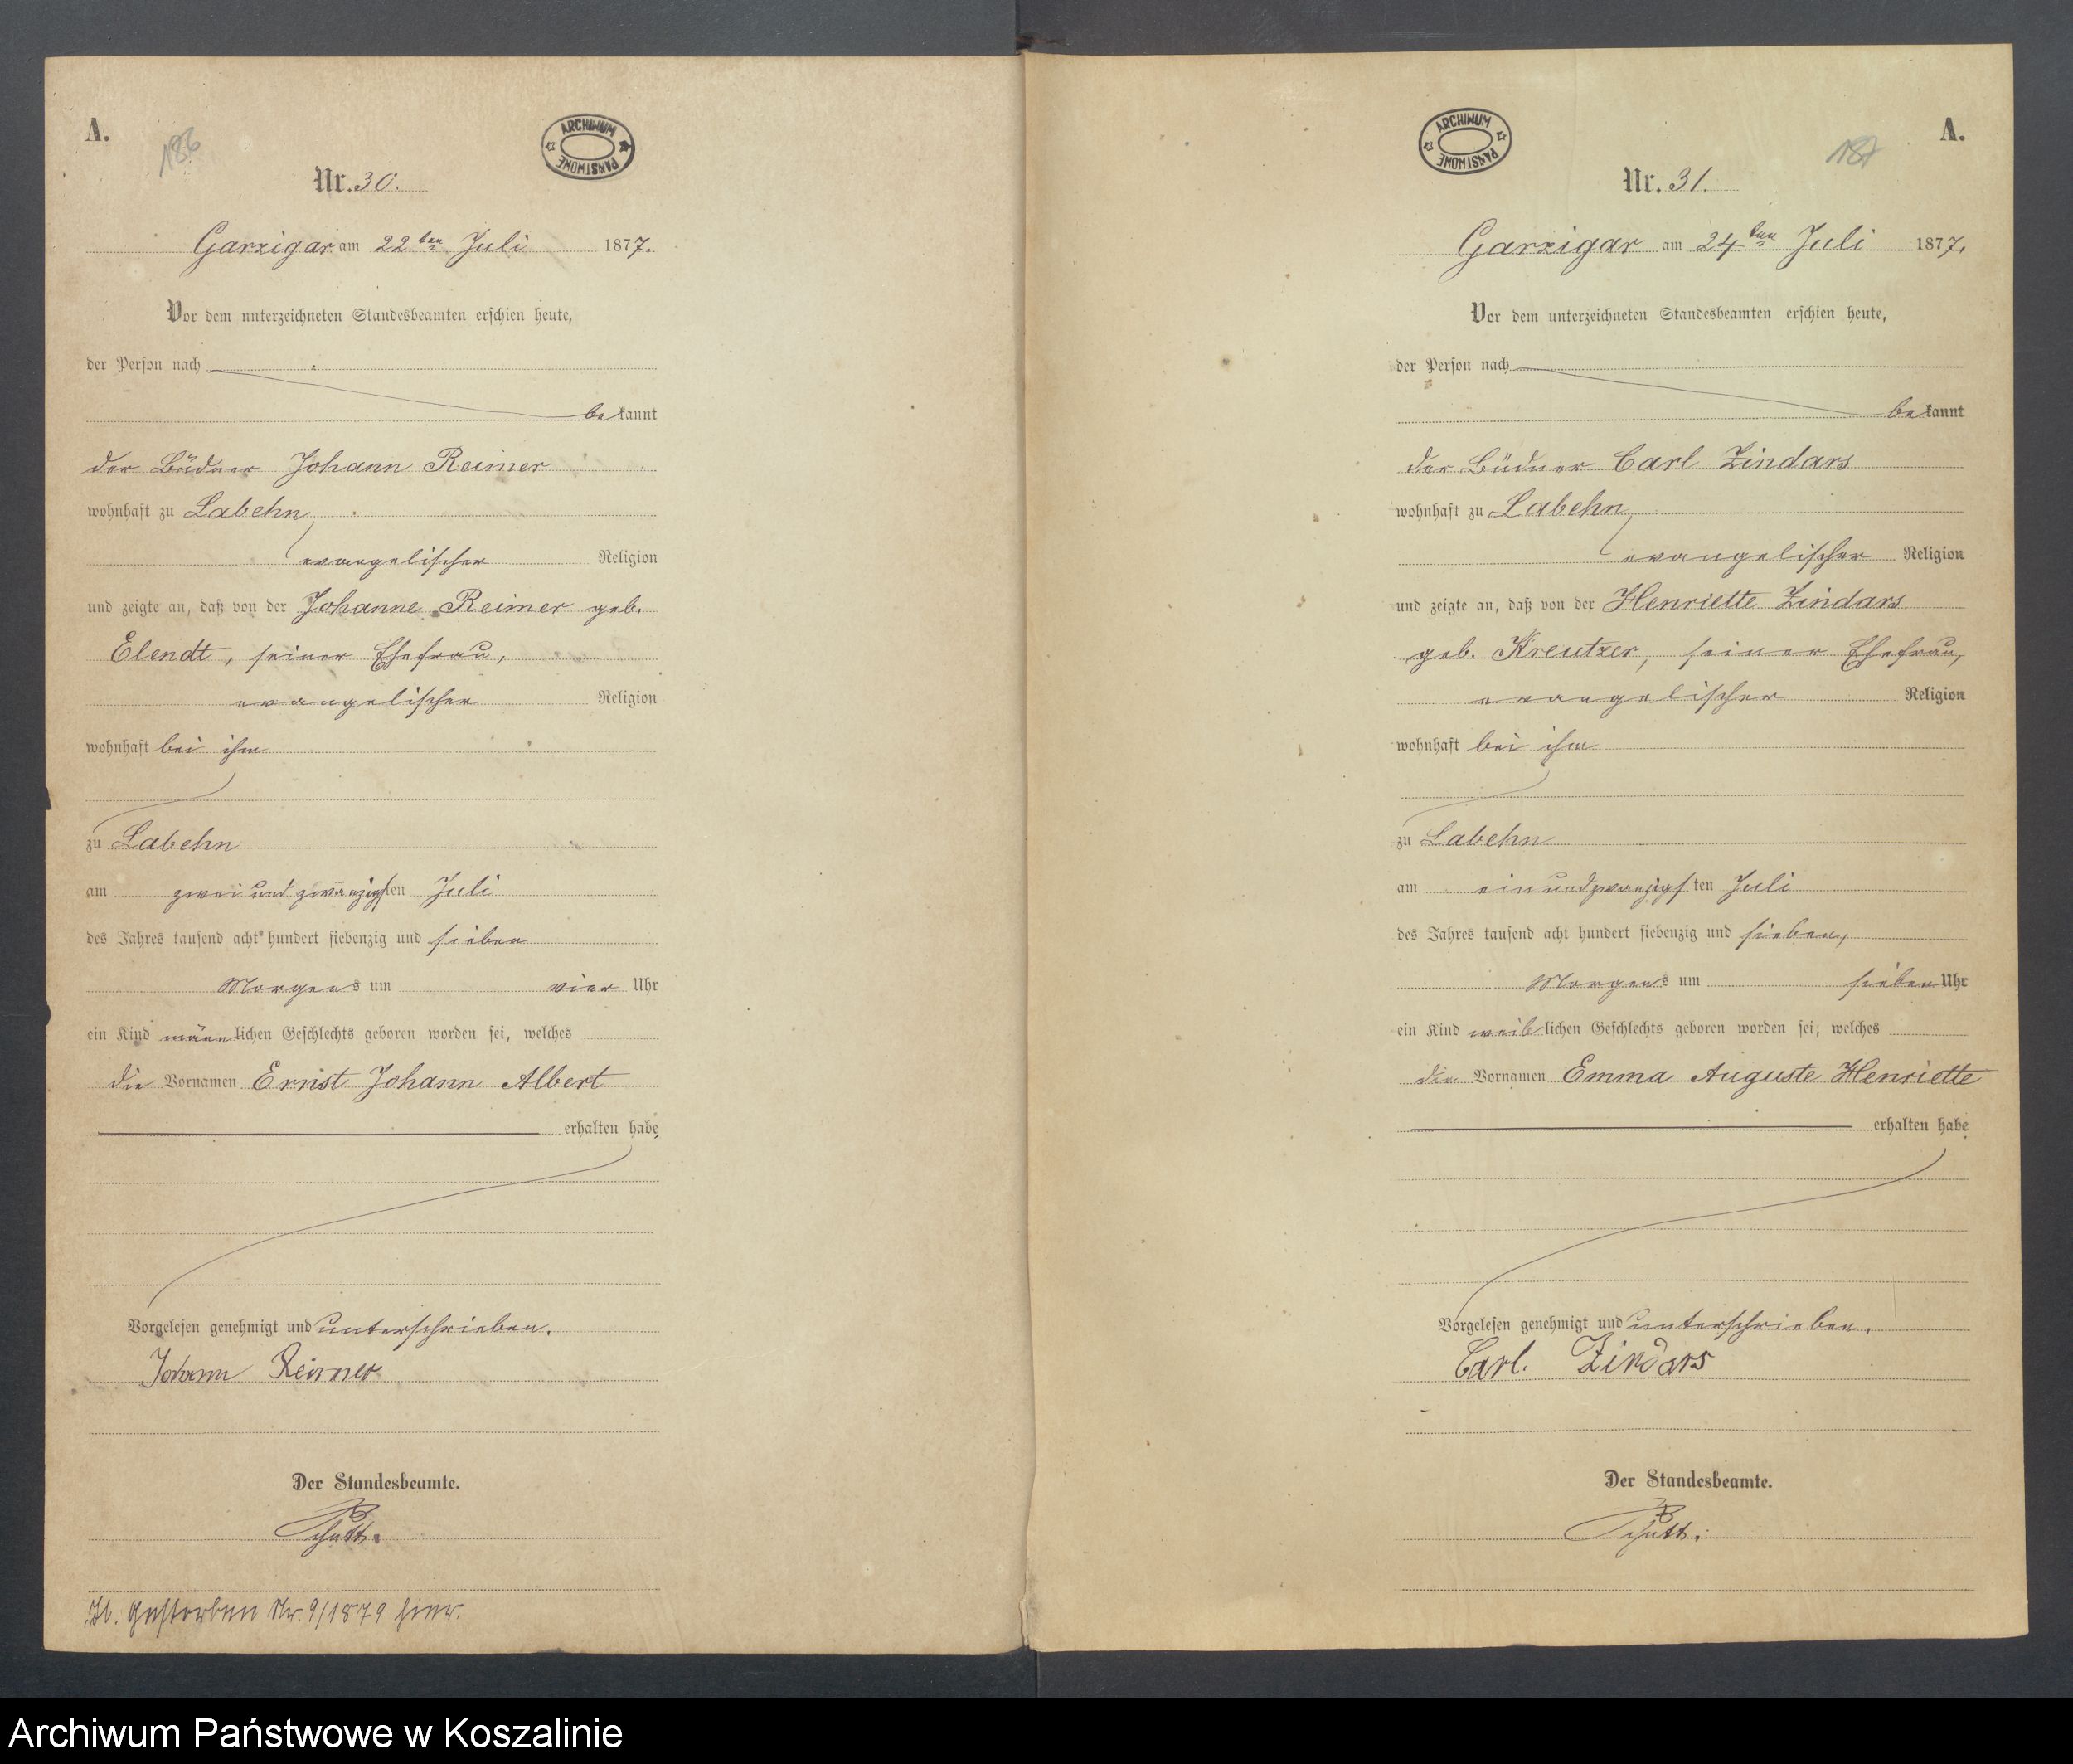 A.
186
ARCHIWUM PAŃSTWOWE
Nr. 30.
Garzigar am 22ten Juli 1877.
Vor dem unterzeichneten Standesbeamten erschien heute,
der Person nach
bekannt
der Büdner Johann Reimer
wohnhaft zu Labehn,
evangelischer Religion
und zeigte an, daß von der Johanne Reimer geb.
Elendt, seiner Ehefrau,
evangelischer Religion
wohnhaft bei ihm
zu Labehn
am zwei und zwanzigsten Juli
des Jahres tausend acht hundert siebenzig und sieben
Morgens um vier Uhr
ein Kind männlichen Geschlechts geboren worden sei, welches
die Vornamen Ernst Johann Albert
erhalten habe
Vorgelesen genehmigt und unterschrieben.
Johann Reimer
Der Standesbeamte.
Gestorben Nr. 9/1879 hier.
A.
187
ARCHIWUM PAŃSTWOWE
Nr. 31.
Garzigar am 24ten Juli 1877.
Vor dem unterzeichneten Standesbeamten erschien heute,
der Person nach
bekannt
der Büdner Carl Zindars
wohnhaft zu Labehn,
evangelischer Religion
und zeigte an, daß von der Henriette Zindars
geb. Kreutzer, seiner Ehefrau,
evangelischer Religion
wohnhaft bei ihm
zu Labehn
am ein und zwanzigsten Juli
des Jahres tausend acht hundert siebenzig und sieben,
Morgens um sieben Uhr
ein Kind weiblichen Geschlechts geboren worden sei, welches
die Vornamen Emma Auguste Henriette
erhalten habe
Vorgelesen genehmigt und unterschrieben.
Carl. Zindars
Der Standesbeamte.
Archiwum Państwowe w Koszalinie